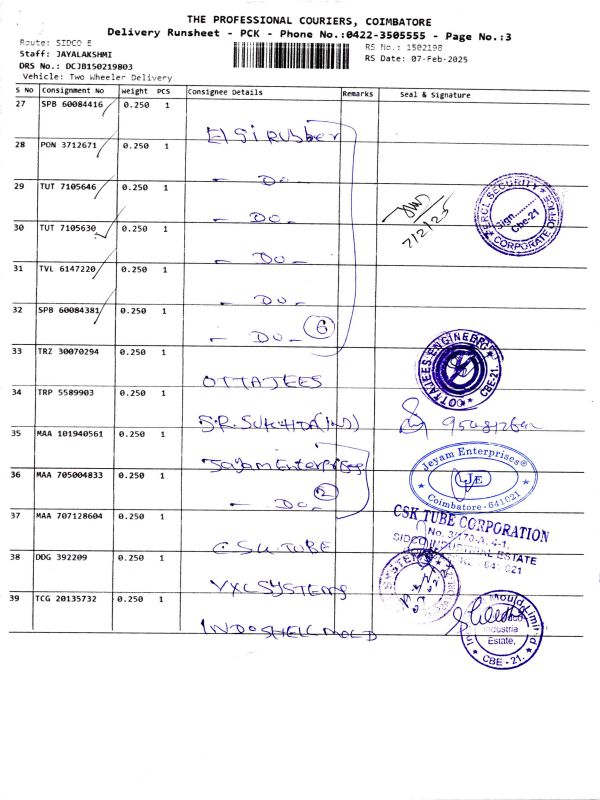 THE PROFESSIONAL COURIERS, COIMBATORE
Delivery Runsheet - PCK - Phone No.:0422-3505555 - Page No.:3
Route: SIDCO E
RS No.: 1502198
Staff: JAYALAKSHMI
RS Date: 07-Feb-2025
DRS No.: DCJB150219803
Vehicle: Two Wheeler Delivery
S No Consignment No Weight PCS Consignee Details Remarks Seal & Signature
27 SPB 60084416 0.250 1
Elgi Rubber
28 PON 3712671 0.250 1
- DO -
29 TUT 7105646 0.250 1
- DO -
7/2/25
SECURITY
Sign
Cbe-21
CORPORATE OFFICE
30 TUT 7105630 0.250 1
- DO -
31 TVL 6147220 0.250 1
- DO -
32 SPB 60084381 0.250 1
- DO - 6
33 TRZ 30070294 0.250 1
OTTAJEES
OTTAJEES ENGINEERING
CBE-21.
34 TRP 5589903 0.250 1
S.R. SUKHIDA (IND)
35 MAA 101940561 0.250 1
Jayam Enterprises
Jeyam Enterprises®
JE
Coimbatore - 641021
36 MAA 705004833 0.250 1
- DO - 2
37 MAA 707128604 0.250 1
CSK TUBE
CSK TUBE CORPORATION
No. 3/170-A, 4-1,
SIDCO INDUSTRIAL ESTATE
641 021
38 DDG 392209 0.250 1
VXL SYSTEMS
SYSTEMS
39 TCG 20135732 0.250 1
INDOSHELL MOLD
Mould Limited
Industria
Estate,
CBE - 21.